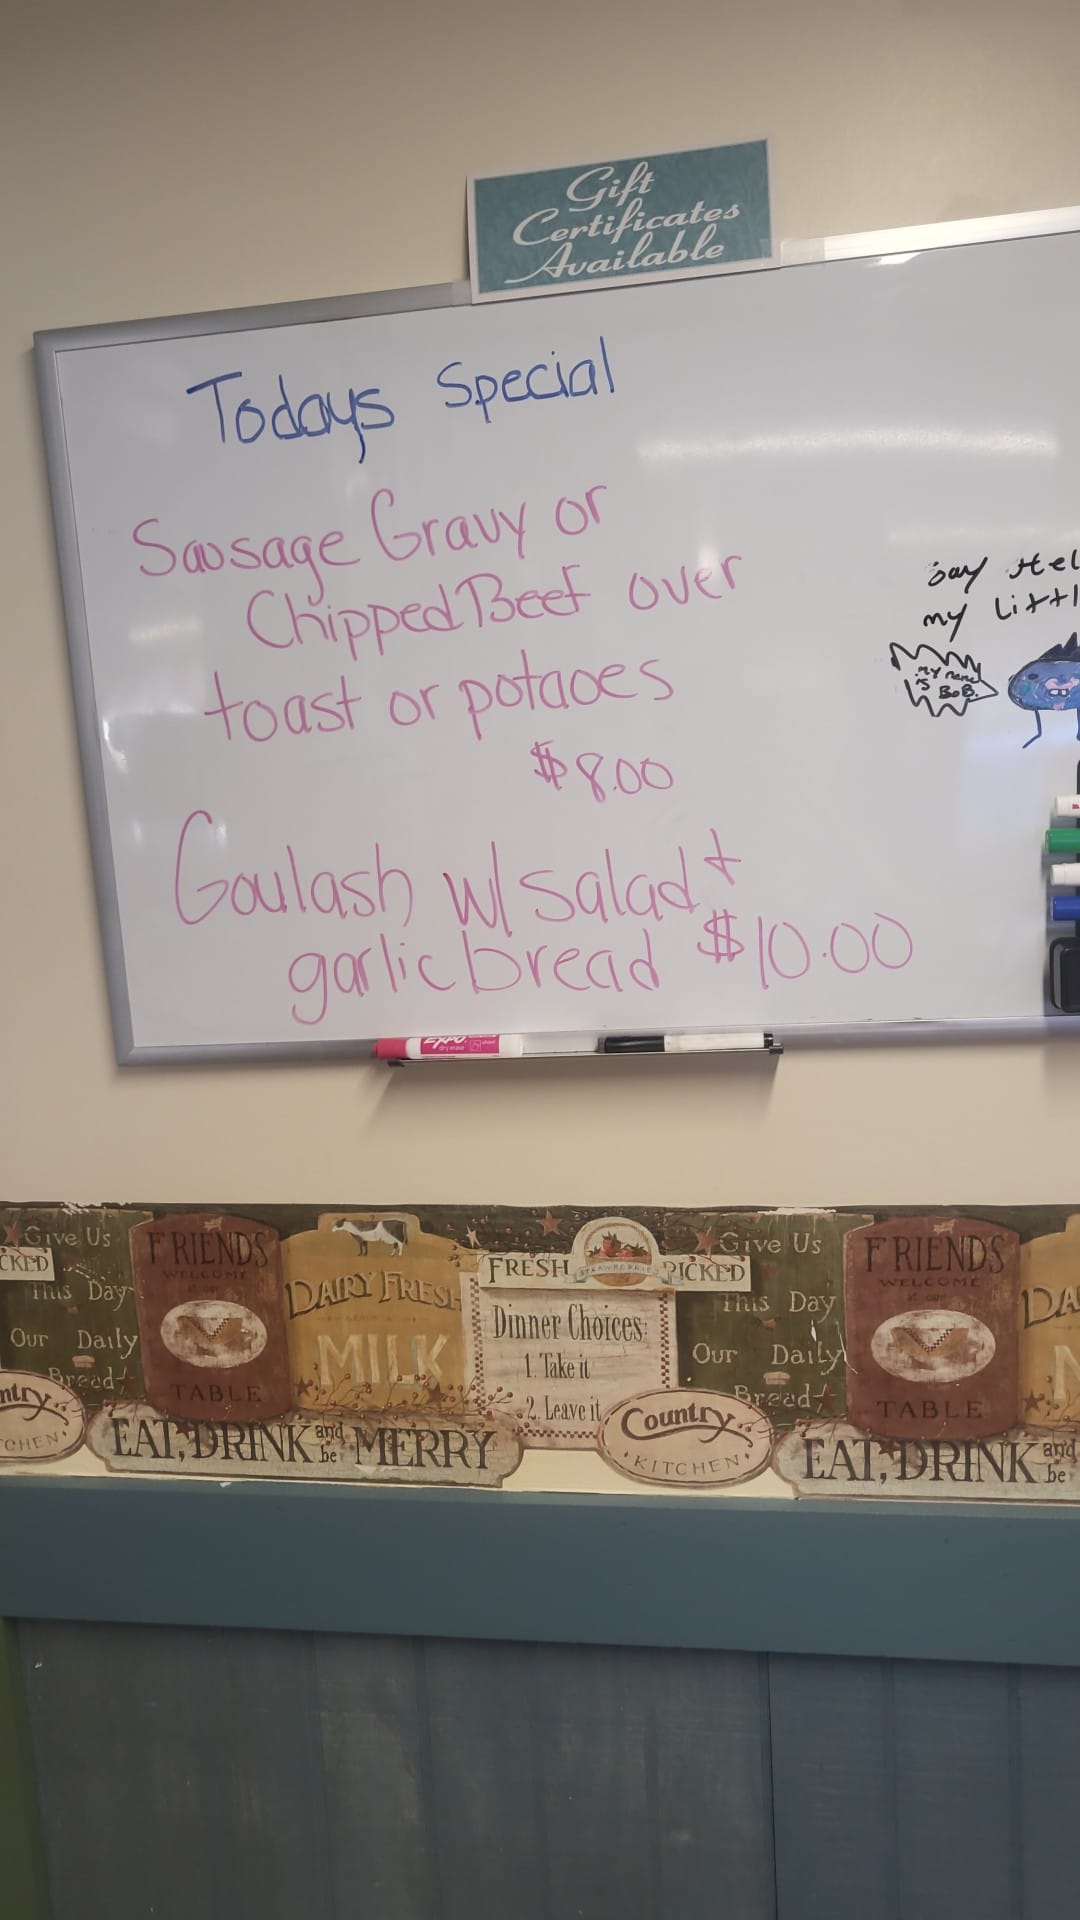 Gift
Certificates
Available
Todays Special
Sausage Gravy or
Chipped Beef over
toast or potaoes
$8.00
Goulash w/ salad +
garlic bread $10.00
Say Hel
my Littl
my name
is BOB.
EXPO
dry erase
Give Us
CKED
This Day
Our Daily
Bread
ntry
CHEN
FRIENDS
WELCOME
TABLE
DAIRY FRESH
MILK
EAT, DRINK and be MERRY
FRESH STRAWBERRIES PICKED
Dinner Choices:
1. Take it
2. Leave it
Country
KITCHEN
Give Us
This Day
Our Daily
Bread
FRIENDS
WELCOME
at our
TABLE
DA
EAT, DRINK and be